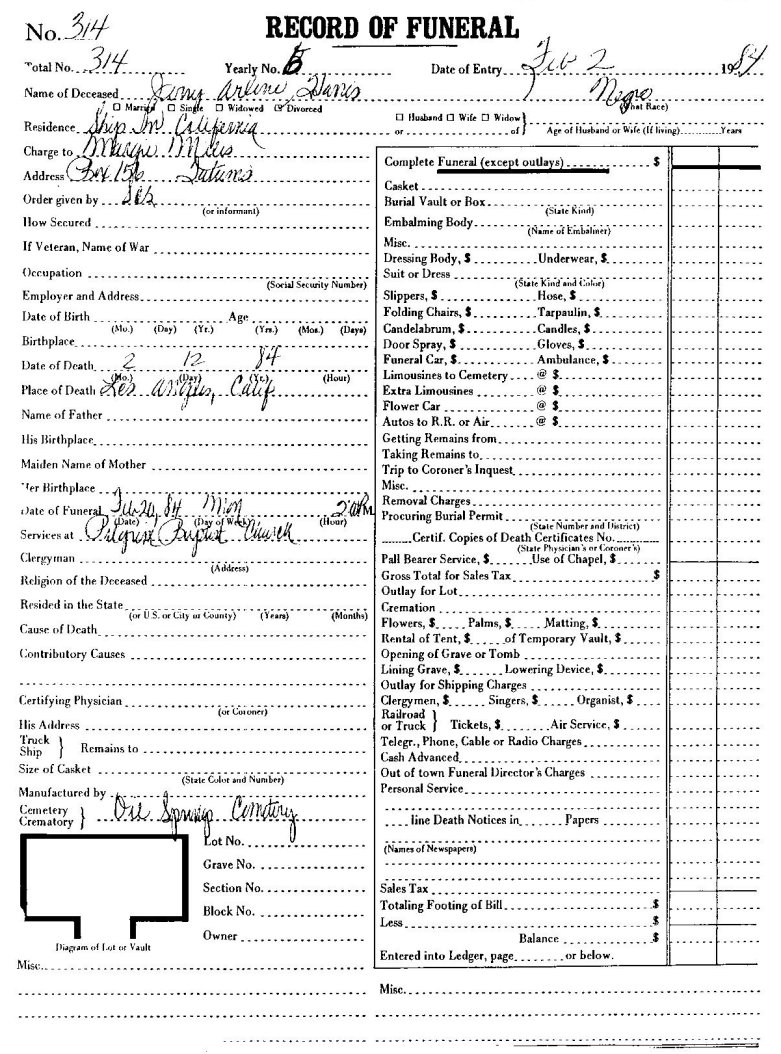 No. 314
RECORD OF FUNERAL
Total No. 314 Yearly No. Date of Entry Feb 2 1984
Name of Deceased Arline Negro
☐ Married ☐ Single ☐ Widowed ☑ Divorced (What Race)
Residence Ship In California
☐ Husband ☐ Wife ☐ Widow
or of Age of Husband or Wife (If living) Years
Charge to
Address Box 156 Tatums
Order given by
(or informant)
How Secured
If Veteran, Name of War
Occupation
(Social Security Number)
Employer and Address
Date of Birth Age
(Mo.) (Day) (Yr.) (Yrs.) (Mos.) (Days)
Birthplace
Date of Death 2 12 84
(Mo.) (Day) (Yr.) (Hour)
Place of Death Los Angeles, Calif
Name of Father
His Birthplace
Maiden Name of Mother
Her Birthplace
Date of Funeral Feb 20, 84 Mon 2:00 PM
(Date) (Day of Week) (Hour)
Services at Pilgrim Baptist Church
Clergyman
(Address)
Religion of the Deceased
Resided in the State
(or U.S. or City or County) (Years) (Months)
Cause of Death
Contributory Causes
Certifying Physician
(or Coroner)
His Address
Truck
Ship } Remains to
Size of Casket
(State Color and Number)
Manufactured by
Cemetery
Crematory } Oil Springs Cemetery
Lot No.
Grave No.
Section No.
Block No.
Owner
Diagram of Lot or Vault
Misc.
Complete Funeral (except outlays) $
Casket
Burial Vault or Box
(State Kind)
Embalming Body
(Name of Embalmer)
Misc.
Dressing Body, $ Underwear, $
Suit or Dress
(State Kind and Color)
Slippers, $ Hose, $
Folding Chairs, $ Tarpaulin, $
Candelabrum, $ Candles, $
Door Spray, $ Gloves, $
Funeral Car, $ Ambulance, $
Limousines to Cemetery @ $
Extra Limousines @ $
Flower Car @ $
Autos to R.R. or Air @ $
Getting Remains from
Taking Remains to
Trip to Coroner's Inquest
Misc.
Removal Charges
Procuring Burial Permit
(State Number and District)
Certif. Copies of Death Certificates No.
(State Physician's or Coroner's)
Pall Bearer Service, $ Use of Chapel, $
Gross Total for Sales Tax $
Outlay for Lot
Cremation
Flowers, $ Palms, $ Matting, $
Rental of Tent, $ of Temporary Vault, $
Opening of Grave or Tomb
Lining Grave, $ Lowering Device, $
Outlay for Shipping Charges
Clergymen, $ Singers, $ Organist, $
Railroad
or Truck } Tickets, $ Air Service, $
Telegr., Phone, Cable or Radio Charges
Cash Advanced
Out of town Funeral Director's Charges
Personal Service
line Death Notices in Papers
(Names of Newspapers)
Sales Tax
Totaling Footing of Bill $
Less $
Balance $
Entered into Ledger, page or below.
Misc.